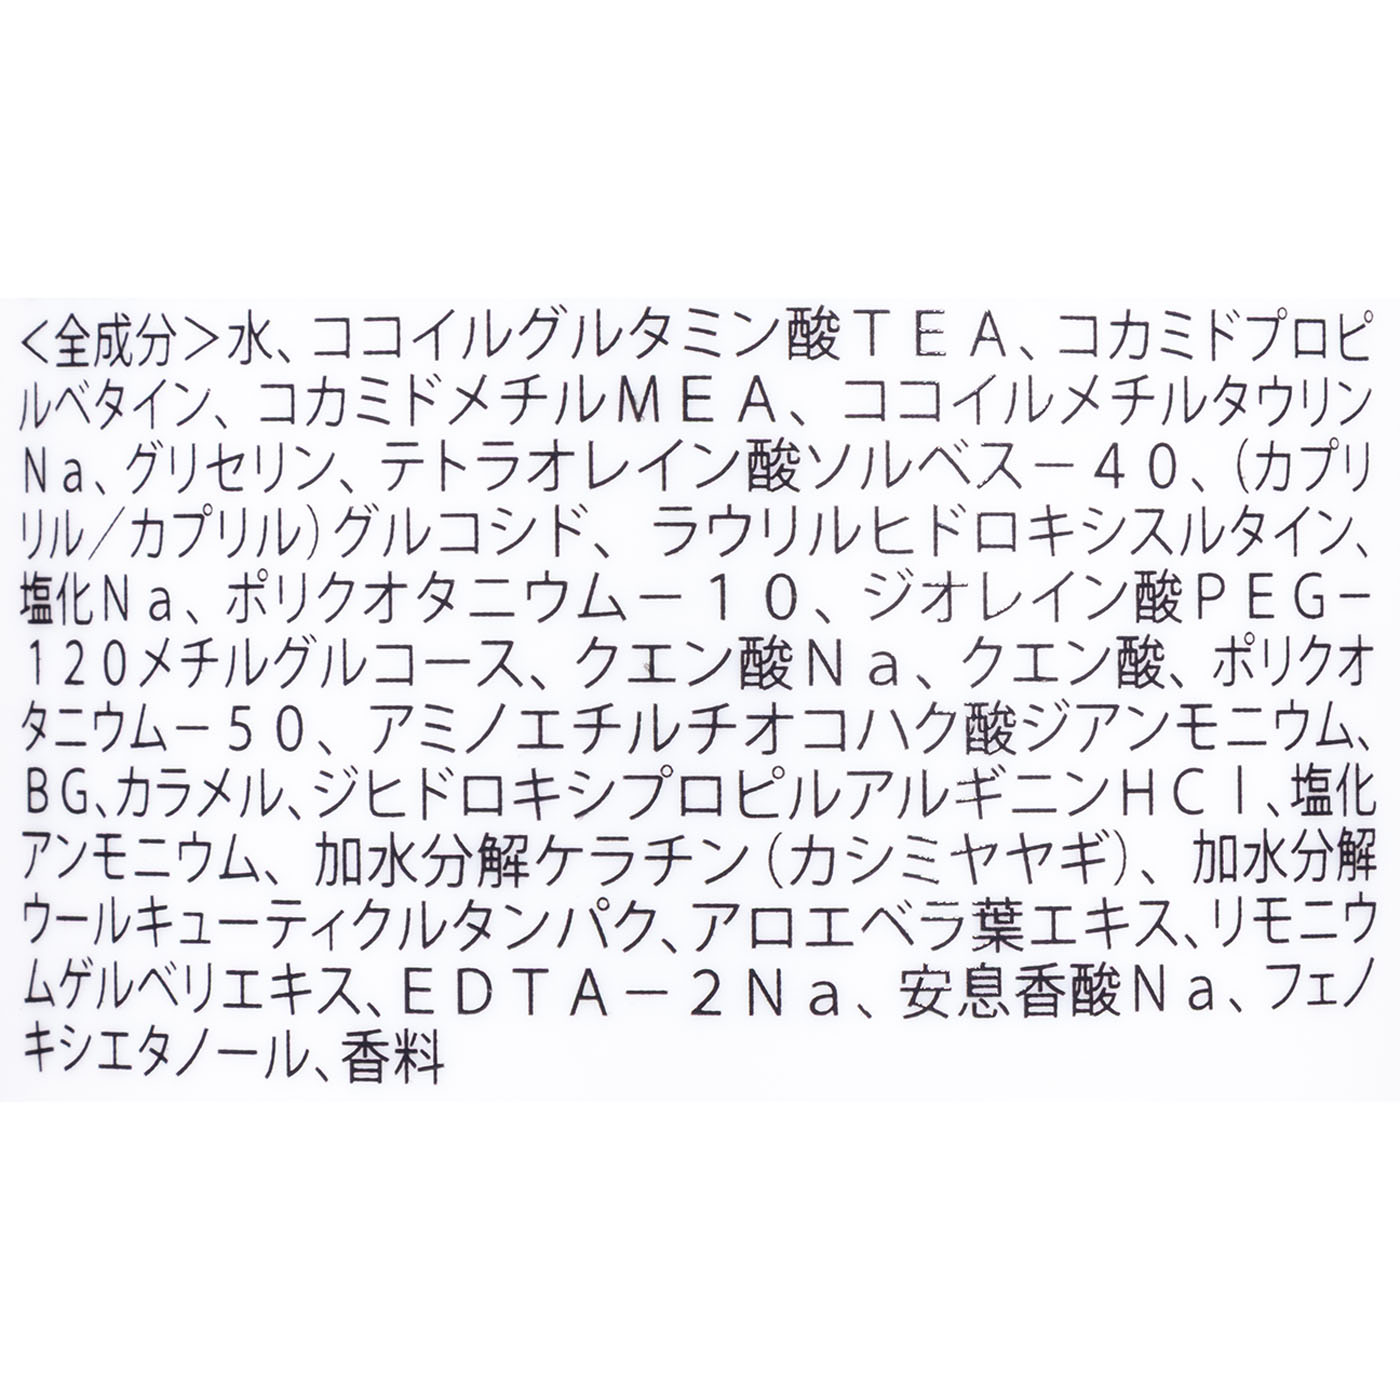 ＜全成分＞水、ココイルグルタミン酸ＴＥＡ、コカミドプロピ
ルベタイン、コカミドメチルＭＥＡ、ココイルメチルタウリン
Ｎａ、グリセリン、テトラオレイン酸ソルベス－４０、（カプリ
リル／カプリル）グルコシド、ラウリルヒドロキシスルタイン、
塩化Ｎａ、ポリクオタニウム－１０、ジオレイン酸ＰＥＧ－
１２０メチルグルコース、クエン酸Ｎａ、クエン酸、ポリクオ
タニウム－５０、アミノエチルチオコハク酸ジアンモニウム、
ＢＧ、カラメル、ジヒドロキシプロピルアルギニンＨＣｌ、塩化
アンモニウム、加水分解ケラチン（カシミヤヤギ）、加水分解
ウールキューティクルタンパク、アロエベラ葉エキス、リモニウ
ムゲルベリエキス、ＥＤＴＡ－２Ｎａ、安息香酸Ｎａ、フェノ
キシエタノール、香料